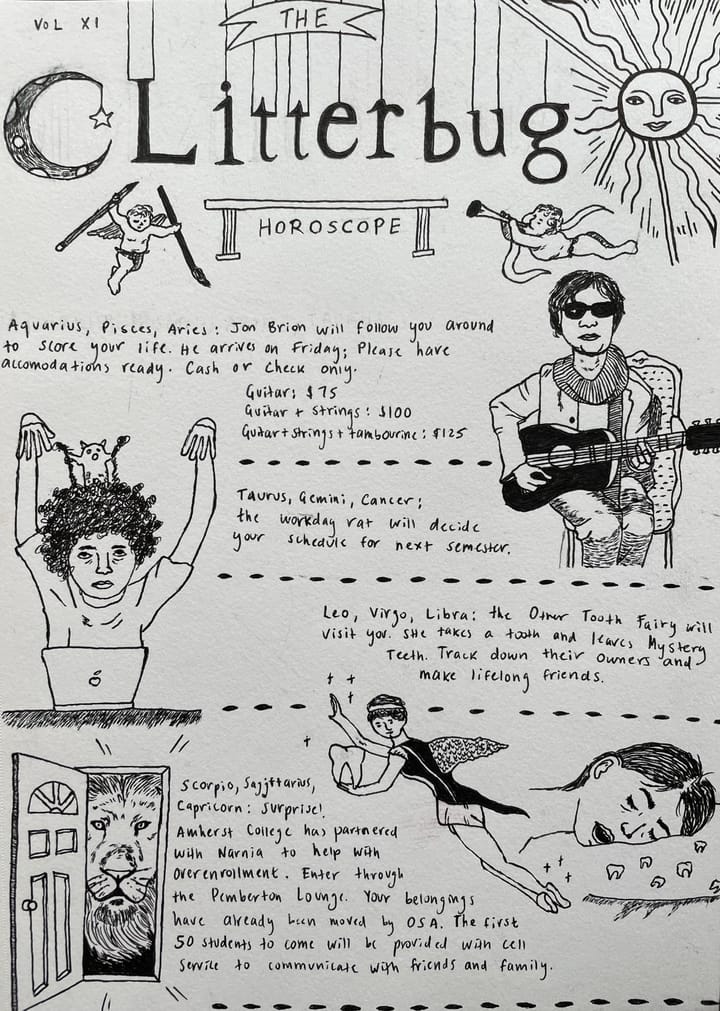 VOL XI
THE
CLitterbug
HOROSCOPE
Aquarius, Pisces, Aries: Jon Brion will follow you around
to score your life. He arrives on Friday; Please have
accomodations ready. Cash or check only.
Guitar: $75
Guitar + strings: $100
Guitar + strings + tambourine: $125
Taurus, Gemini, Cancer;
the workday rat will decide
your schedule for next semester.
Leo, Virgo, Libra: the Other Tooth Fairy will
visit you. She takes a tooth and leaves Mystery
Teeth. Track down their owners and
make lifelong friends.
Scorpio, Sagittarius,
Capricorn: Surprise!
Amherst College has partnered
with Narnia to help with
overenrollment. Enter through
the Pemberton Lounge. Your belongings
have already been moved by OSA. The first
50 students to come will be provided with cell
service to communicate with friends and family.